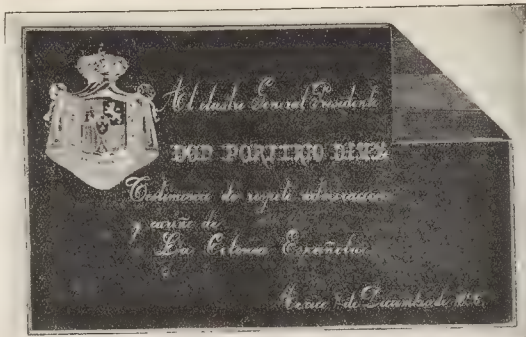 Al ilustre General Presidente
DON PORFIRIO DIAZ
Testimonio de respeto admiracion
y cariño de
La Colonia Española
Mexico 1º de Diciembre de